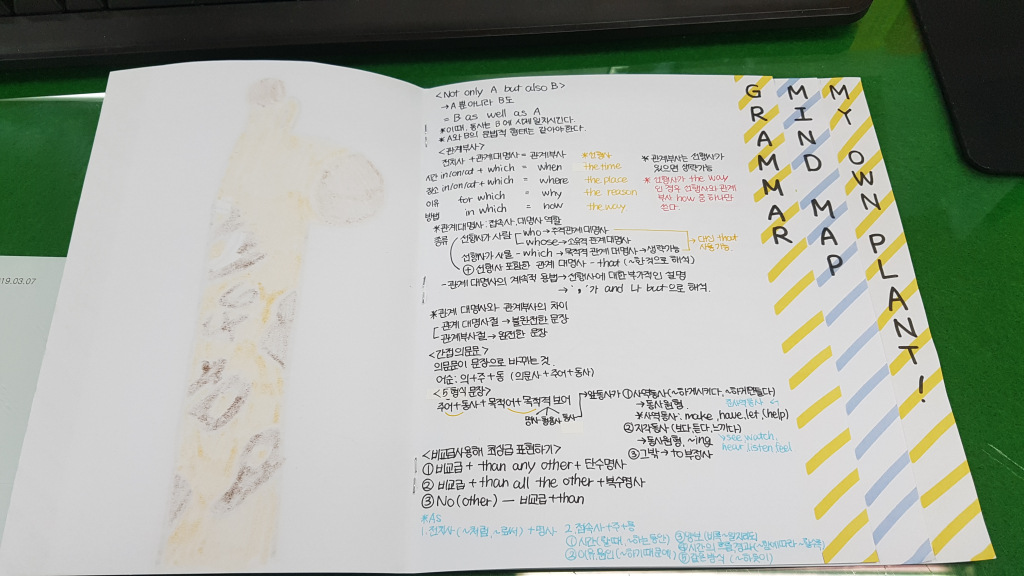 <Not only A but also B>
→ A뿐 아니라 B도
= B as well as A
*이때, 동사는 B에 시제 일치시킨다.
* A와 B의 문법적 형태는 같아야 한다.
<관계부사>
전치사 + 관계대명사 = 관계부사 *선행사
시간 in/on/at + which = when the time
장소 in/on/at + which = where the place
이유 for which = why the reason
방법 in which = how the way
* 관계부사는 선행사가
있으면 생략가능
* 선행사가 the way
인 경우 선행사와 관계
부사 how 중 하나만
쓴다.
*관계대명사 : 접속사, 대명사 역할
종류 선행사가 사람 who → 주격관계대명사
whose → 소유격 관계대명사
선행사가 사물 - which → 목적격 관계 대명사 → 생략가능
대신 that
사용가능
+ 선행사 포함한 관계 대명사 - that (~한 것으로 해석)
- 관계 대명사의 계속적 용법 → 선행사에 대한 부가적인 설명
→ ','가 and 나 but으로 해석.
*관계 대명사와 관계부사의 차이
관계 대명사절 → 불완전한 문장
관계부사절 → 완전한 문장
<간접의문문>
의문문이 문장으로 바뀌는 것
어순: 의+주+동 (의문사 + 주어+동사)
<5형식 문장>
주어+동사+목적어+목적격 보어
명사 형용사 동사
→ 앞동사가 ①사역동사(~하게시키다, ~하게만들다)
→ 동사원형
*사역동사: make, have, let (help)
준사역동사
② 지각동사 (보다, 듣다, 느끼다)
→ 동사원형, ~ing
see, watch,
hear, listen, feel
③ 그밖 → to 부정사
<비교급사용해 최상급 표현하기>
① 비교급 + than any other + 단수명사
② 비교급 + than all the other + 복수명사
③ No (other) ― 비교급 +than
*As
1. 전치사 (~처럼, ~로써) + 명사 2. 접속사+주+동
① 시간 (할 때, ~하는동안) ③ 양보 (비록 ~일지라도)
② 이유, 원인 (~하기 때문에)
⑤ 같은 방식 (~하듯이)
GRAMMAR
MIND MAP
MY OWN PLANT!
2019.03.07